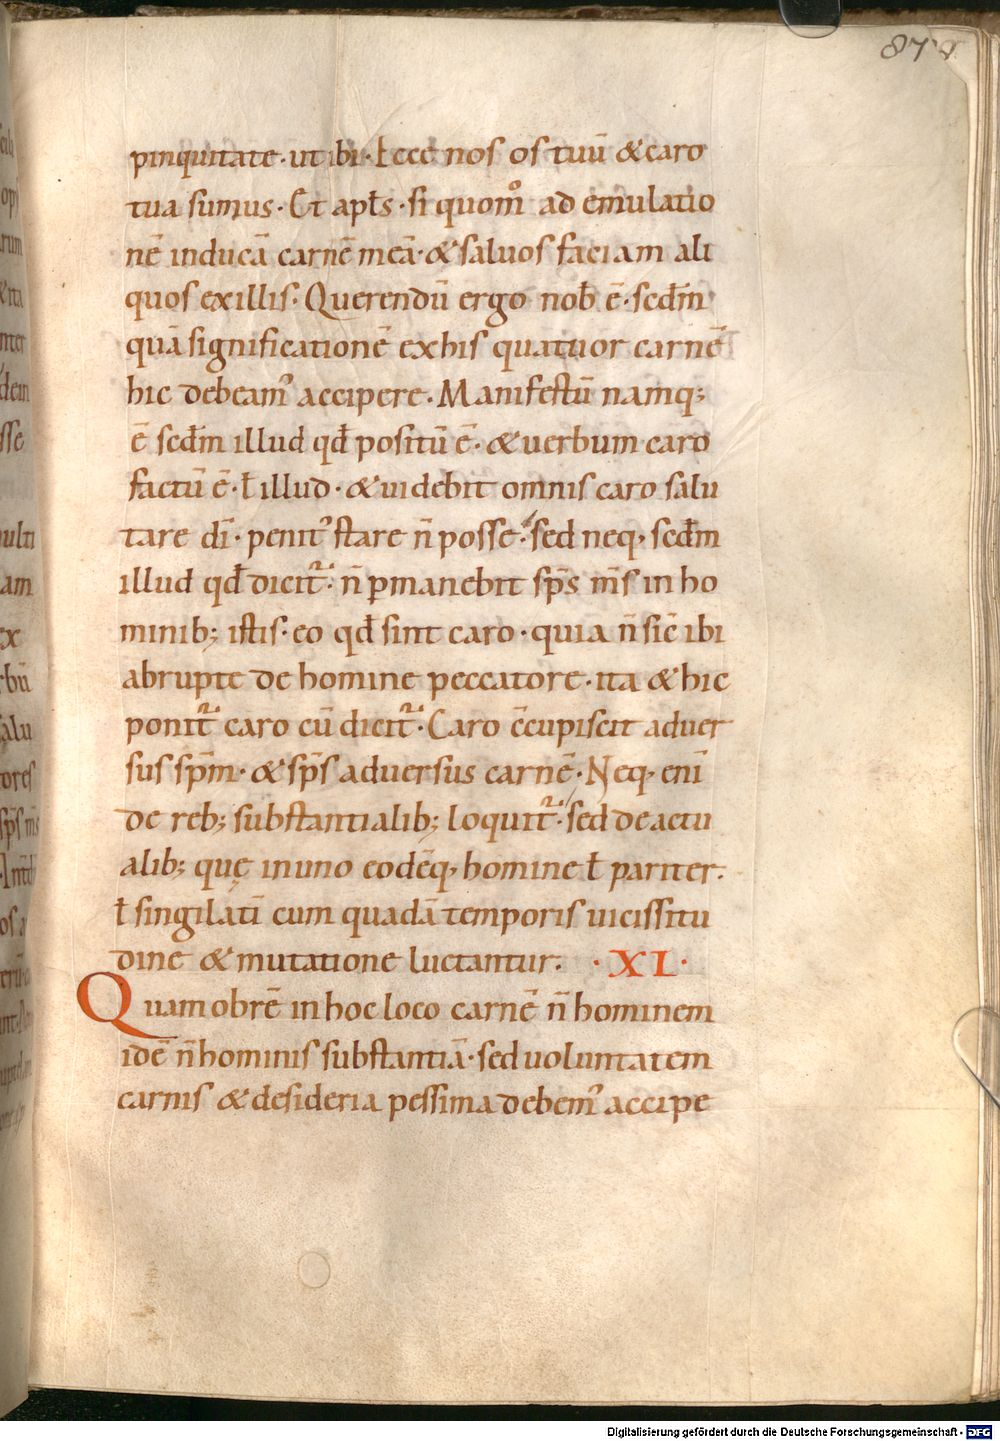 878
pinquitate · ut ibi · Ecce nos os tuū & caro
tua sumus · Et apłs · si quomͦ ad emulatio
nē inducā carnē meā · & saluos faciam ali
quos ex illis · Querendū ergo nob̄ ē · scd̄m
quā significationē ex his quatuor carnē
hic debeam᾽ accipere · Manifestū namq;
ē scd̄m illud qd̄ positū ē · & uerbum caro
factū ē · ł illud · & uidebit omnis caro salu
tare dī · penit᾽ stare n̄ posse · sed neq, scd̄m
illud qd̄ dicit᷑ · n̄ ꝑmanebit sp̄s m̄s in ho
minib; istis · eo qd̄ sint caro · quia n̄ sic̄ ibi
abrupte de homine peccatore · ita & hic
ponit᷑ caro cū dicit᷑ · Caro c̄cupiscit aduer
sus sp̄m · & sp̄s aduersus carnē · Neq, enī
de reb; substantialib; loquit᷑ · sed de actu
alib; quę in uno eodēq, homine ł pariter ·
ł singilatī cum quadā temporis uicissitu
dine & mutatione luctantur · · XL ·
Quam obrē in hoc loco carnē n̄ hominem
idē n̄ hominis substantiā · sed uoluntatem
carnis & desideria pessima debem᾽ accipe
Digitalisierung gefördert durch die Deutsche Forschungsgemeinschaft - DFG